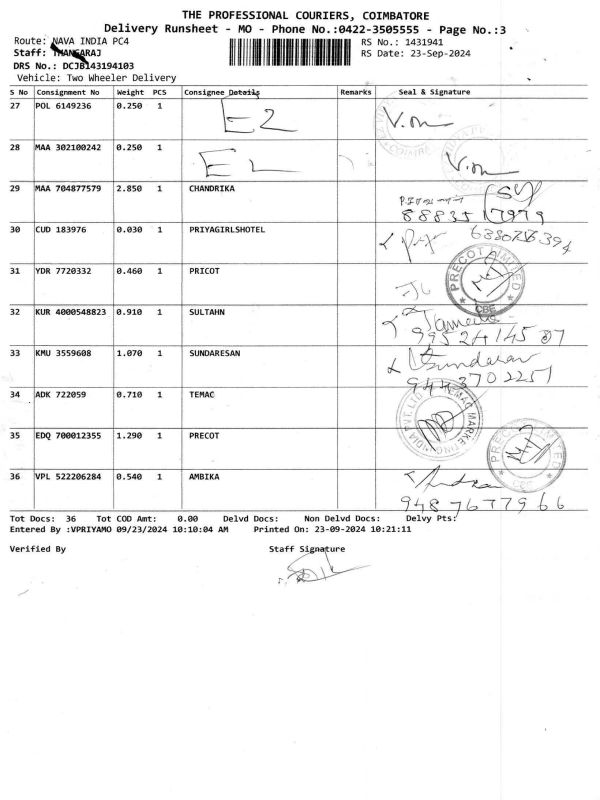 THE PROFESSIONAL COURIERS, COIMBATORE
Delivery Runsheet - MO - Phone No.:0422-3505555 - Page No.:3
Route: NAVA INDIA PC4 RS No.: 1431941
Staff: THANGARAJ RS Date: 23-Sep-2024
DRS No.: DCJB143194103
Vehicle: Two Wheeler Delivery
S No Consignment No Weight PCS Consignee Details Remarks Seal & Signature
27 POL 6149236 0.250 1 E2 V.m
28 MAA 302100242 0.250 1 EL V.m
29 MAA 704877579 2.850 1 CHANDRIKA
88835 17979
30 CUD 183976 0.030 1 PRIYAGIRLSHOTEL
31 YDR 7720332 0.460 1 PRICOT PRECOT LIMITED CBE
32 KUR 4000548823 0.910 1 SULTAHN
99524145 07
33 KMU 3559608 1.070 1 SUNDARESAN Sundaran
9443702251
34 ADK 722059 0.710 1 TEMAC
35 EDQ 700012355 1.290 1 PRECOT PRECOT LIMITED
36 VPL 522206284 0.540 1 AMBIKA
9487677966
Tot Docs: 36 Tot COD Amt: 0.00 Delvd Docs: Non Delvd Docs: Delvy Pts:
Entered By :VPRIYAMO 09/23/2024 10:10:04 AM Printed On: 23-09-2024 10:21:11
Verified By Staff Signature